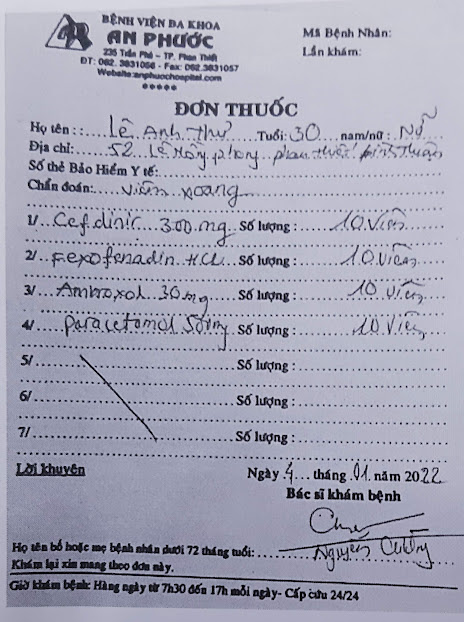 BỆNH VIỆN ĐA KHOA
AN PHƯỚC
235 Trần Phú – TP. Phan Thiết
ĐT: 062. 3831056 - Fax: 062.3831057
Website:anphuochospital.com
Mã Bệnh Nhân:
Lần khám:
ĐƠN THUỐC
Họ tên : Lê Anh Thư Tuổi: 30 nam/nữ: Nữ
Địa chỉ: 52 Lê Hồng Phong phan thiết Bình Thuận
Số thẻ Bảo Hiểm Y tế:
Chẩn đoán: Viêm xoang
1/ Cefdinir 300mg Số lượng : 10 Viên
2/ Fexofenadin HCL Số lượng : 10 Viên
3/ Ambroxol 30mg Số lượng : 10 Viên
4/ Paracetamol 500mg Số lượng : 10 Viên
5/ Số lượng :
6/ Số lượng :
7/ Số lượng :
Lời khuyên
Ngày 4 tháng 01 năm 2022
Bác sĩ khám bệnh
Họ tên bố hoặc mẹ bệnh nhân dưới 72 tháng tuổi:
Nguyễn Cường
Khám lại xin mang theo đơn này.
Giờ khám bệnh: Hàng ngày từ 7h30 đến 17h mỗi ngày- Cấp cứu 24/24